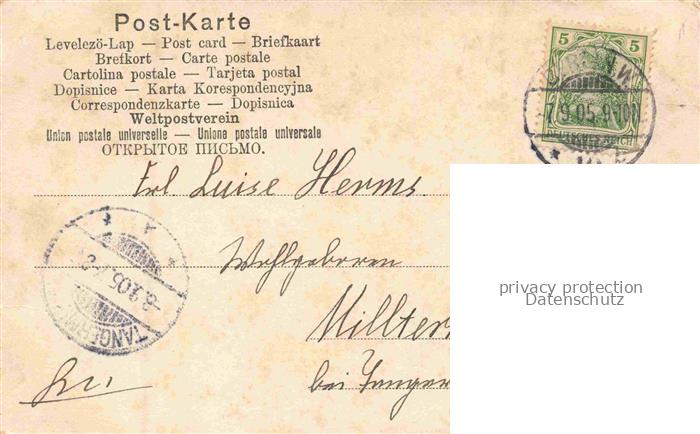 Post-Karte
Levelező-Lap — Post card — Briefkaart
Brefkort — Carte postale
Cartolina postale — Tarjeta postal
Dopisnice — Karta Korespondencyjna
Correspondenzkarte — Dopisnica
Weltpostverein
Union postale universelle — Unione postale universale
ОТКРЫТОЕ ПИСЬМО.
5 5
9.05.9-10
DEUTSCHES REICH
Frl. Luise Herms.
Wohlgeboren
8.9.05
TANGERM
Millter
bei Tanger
privacy protection
Datenschutz